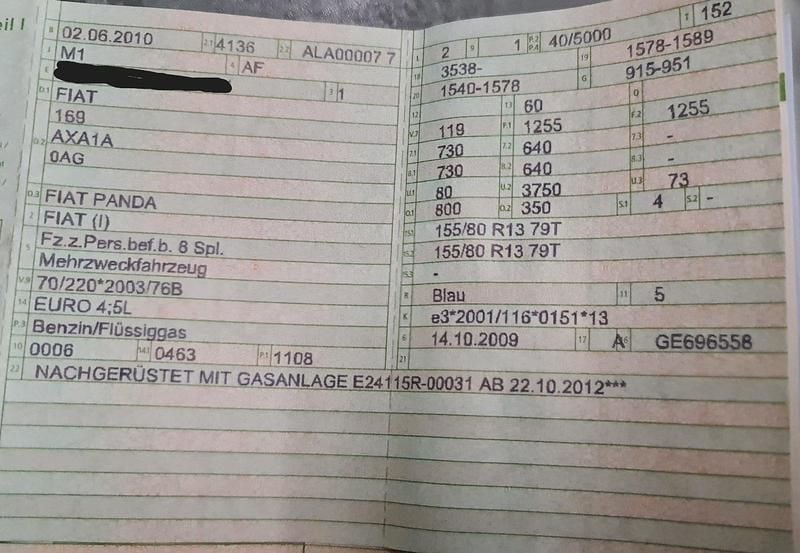 eil I
B 02.06.2010 2.1 4136 2.2 ALA00007 7
J M1
E 4 AF
D.1 FIAT 3 1
169
D.2 AXA1A
0AG
D.3 FIAT PANDA
2 FIAT (I)
5 Fz.z.Pers.bef.b. 8 Spl.
Mehrzweckfahrzeug
V.9 70/220*2003/76B
14 EURO 4;5L
P.3 Benzin/Flüssiggas
10 0006 14.1 0463 P.1 1108
22 NACHGERÜSTET MIT GASANLAGE E24115R-00031 AB 22.10.2012***
L 2 9 1 P.2 P.4 40/5000 T 152
18 3538- 19 1578-1589
20 1540-1578 G 915-951
12 13 60 Q
V.7 119 F.1 1255 F.2 1255
7.1 730 7.2 640 7.3 -
8.1 730 8.2 640 8.3 -
U.1 80 U.2 3750 U.3 73
O.1 800 O.2 350 S.1 4 S.2 -
15.1 155/80 R13 79T
15.2 155/80 R13 79T
15.3 -
R Blau 11 5
K e3*2001/116*0151*13
6 14.10.2009 17 A 16 GE696558
21